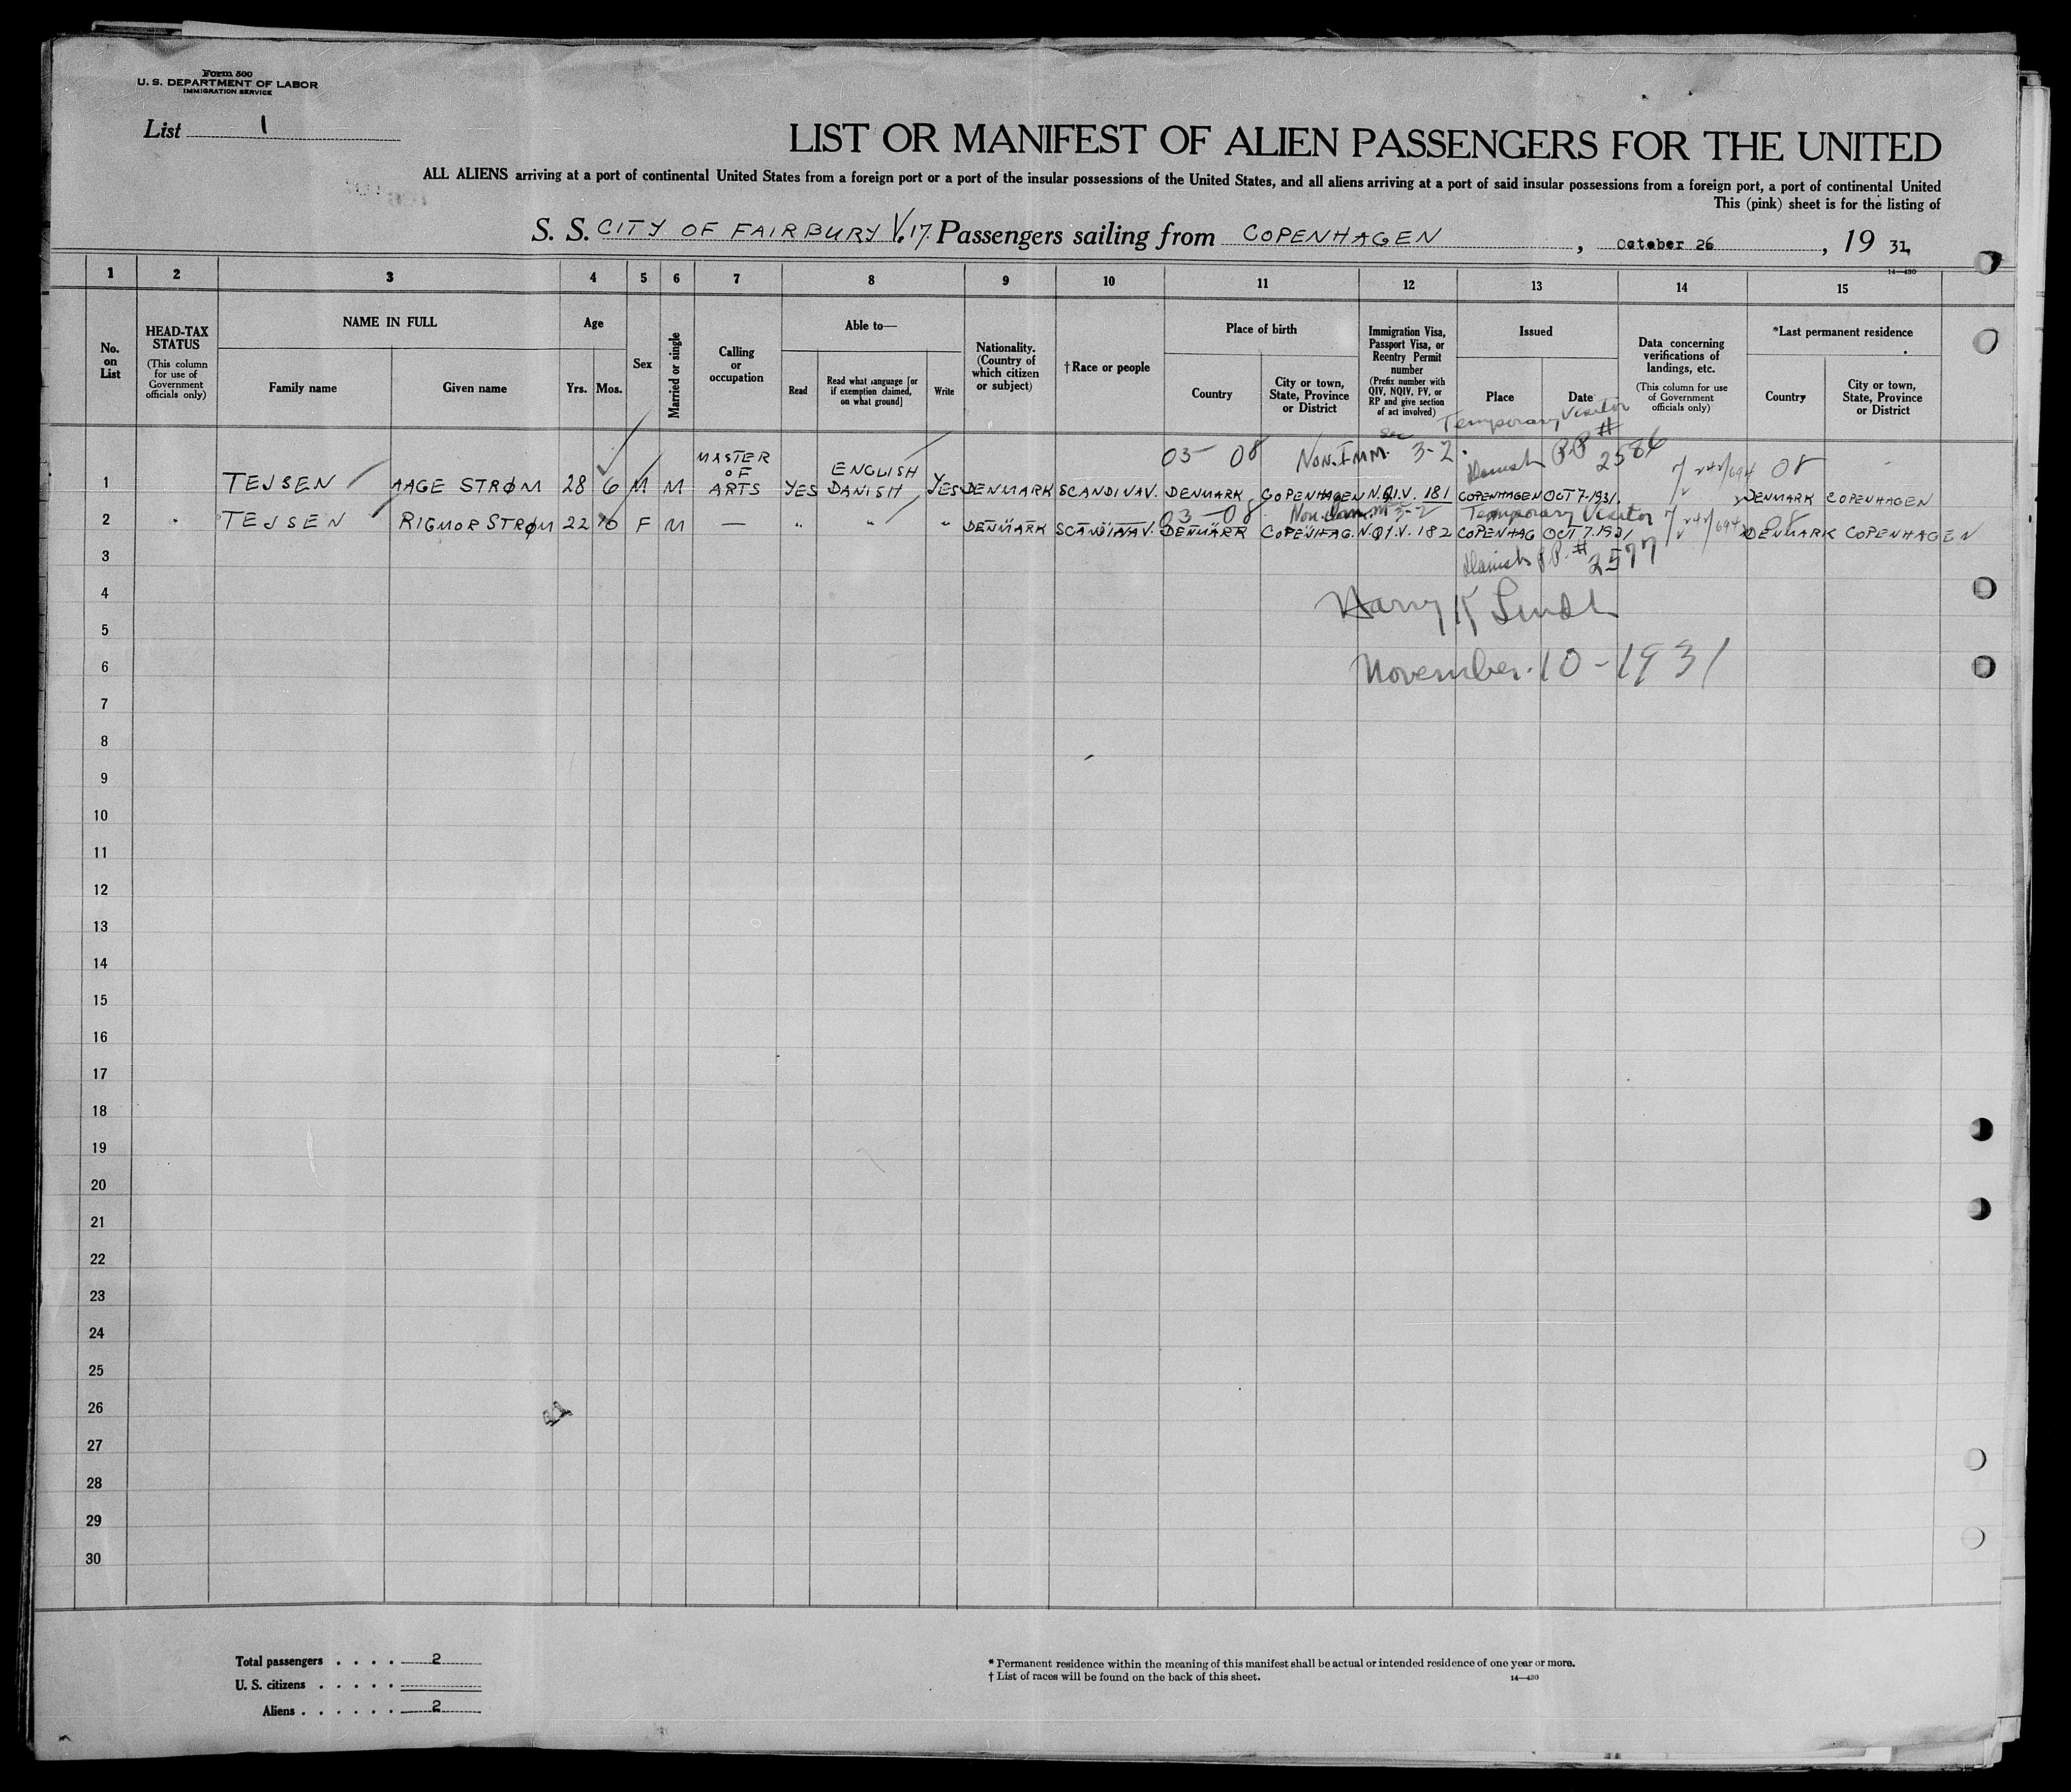 Form 500
U. S. DEPARTMENT OF LABOR
IMMIGRATION SERVICE
List 1
LIST OR MANIFEST OF ALIEN PASSENGERS FOR THE UNITED
ALL ALIENS arriving at a port of continental United States from a foreign port or a port of the insular possessions of the United States, and all aliens arriving at a port of said insular possessions from a foreign port, a port of continental United
This (pink) sheet is for the listing of
S. S. CITY OF FAIRBURY V.17. Passengers sailing from COPENHAGEN, October 26, 19 31,
14—430
1 2 3 4 5 6 7 8 9 10 11 12 13 14 15
No. on List
HEAD-TAX STATUS
(This column for use of Government officials only)
NAME IN FULL
Family name
Given name
Age
Yrs. Mos.
Sex
Married or single
Calling or occupation
Able to—
Read
Read what language [or if exemption claimed, on what ground]
Write
Nationality. (Country of which citizen or subject)
†Race or people
Place of birth
Country
City or town, State, Province or District
Immigration Visa, Passport Visa, or Reentry Permit number
(Prefix number with QIV, NQIV, PV, or RP and give section of act involved)
Issued
Place
Date
Data concerning verifications of landings, etc.
(This column for use of Government officials only)
*Last permanent residence
Country
City or town, State, Province or District
Temporary Visitor
03- 08 Non-Imm. Sec 3-2. Danish P.P # 2586
1 TEJSEN AAGE STRØM 28 6 M M MASTER OF ARTS YES ENGLISH DANISH YES DENMARK SCANDINAV. DENMARK COPENHAGEN N.Q.I.V. 181 COPENHAGEN OCT 7-1931. 08 DENMARK COPENHAGEN
03-08 3-2 Temporary Visitor
2 TEJSEN RIGMOR STRØM 22 10 F M — " " " DENMARK SCANDINAV. DENMARK COPENHAG. N.Q.I.V. 182 COPENHAG OCT 7.1931 DENMARK COPENHAGEN
Danish P.P. # 2577
3
4
Harry K
5
6
November-10-1931
7
8
9
10
11
12
13
14
15
16
17
18
19
20
21
22
23
24
25
26
27
28
29
30
Total passengers . . . . 2
U. S. citizens . . . . .
Aliens . . . . . . 2
* Permanent residence within the meaning of this manifest shall be actual or intended residence of one year or more.
† List of races will be found on the back of this sheet.
14—430